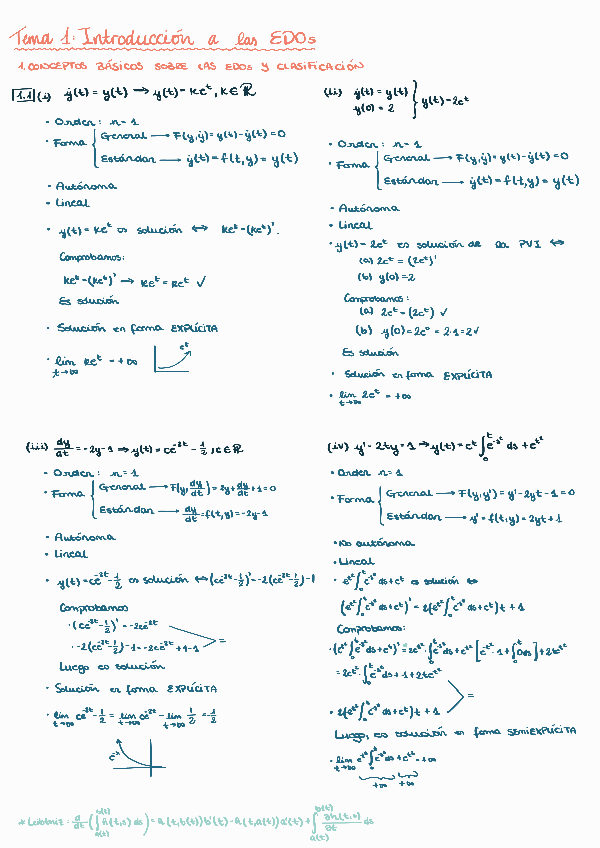 Tema 1: Introducción a las EDOs
1. CONCEPTOS BÁSICOS SOBRE LAS EDOs Y CLASIFICACIÓN
1.1 (i) ẏ(t) = y(t) → y(t) = ke^t, k∈ℝ
• Orden: n=1
• Forma { General → F(y,ẏ) = y(t) - ẏ(t) = 0
Estándar → ẏ(t) = f(t,y) = y(t)
• Autónoma
• Lineal
• y(t) = ke^t es solución ⟺ ke^t = (ke^t)'.
Comprobamos:
ke^t = (ke^t)' → ke^t = ke^t ✓
Es solución
• Solución en forma EXPLÍCITA
• lim ke^t = +∞
t→∞
e^t
(ii) ẏ(t) = y(t)
y(0) = 2 } y(t) = 2e^t
• Orden: n=1
• Forma { General → F(y,ẏ) = y(t) - ẏ(t) = 0
Estándar → ẏ(t) = f(t,y) = y(t)
• Autónoma
• Lineal
• y(t) = 2e^t es solución de la PVI ⟺
(a) 2e^t = (2e^t)'
(b) y(0) = 2
Comprobamos:
(a) 2e^t = (2e^t) ✓
(b) y(0) = 2e^0 = 2·1 = 2 ✓
Es solución
• Solución en forma EXPLÍCITA
• lim 2e^t = +∞
t→∞
(iii) dy/dt = -2y-1 ⇒ y(t) = ce^-2t - 1/2, c∈ℝ
• Orden: n=1
• Forma { General → F(y, dy/dt) = 2y + dy/dt + 1 = 0
Estándar → dy/dt = f(t,y) = -2y-1
• Autónoma
• Lineal
• y(t) = ce^-2t - 1/2 es solución ⟺ (ce^-2t - 1/2)' = -2(ce^-2t - 1/2) - 1
Comprobamos
• (ce^-2t - 1/2)' = -2ce^-2t
• -2(ce^-2t - 1/2) - 1 = -2ce^-2t + 1 - 1
=
Luego es solución
• Solución en forma EXPLÍCITA
• lim ce^-2t - 1/2 = lim ce^-2t - lim 1/2 = -1/2
t→∞ t→∞ t→∞
e^-x
(iv) y' - 2ty = 1 → y(t) = e^t² ∫₀^t e^-s² ds + e^t²
• Orden n=1
• Forma { General → F(y,y') = y' - 2yt - 1 = 0
Estándar → y' = f(t,y) = 2yt + 1
• No autónoma
• Lineal
• e^t² ∫₀^t e^-s² ds + e^t² es solución ⟺
(e^t² ∫₀^t e^-s² ds + e^t²)' = 2(e^t² ∫₀^t e^-s² ds + e^t²)t + 1
Comprobamos:
• (e^t² ∫₀^t e^-s² ds + e^t²)' = 2te^t² ∫₀^t e^-s² ds + e^t² [e^-t² · 1 + ∫₀^t 0ds] + 2te^t²
= 2te^t² ∫₀^t e^-s² ds + 1 + 2te^t²
• 2(e^t² ∫₀^t e^-s² ds + e^t²)t + 1
=
Luego, es solución en forma SEMIEXPLÍCITA
• lim e^t² ∫₀^t e^-s² ds + e^t² = +∞
t→∞
+∞ +∞
* Leibniz = d/dt (∫_a(t)^b(t) h(t,s) ds) = h(t,b(t)) b'(t) - h(t,a(t)) a'(t) + ∫_a(t)^b(t) ∂h(t,s)/∂t ds